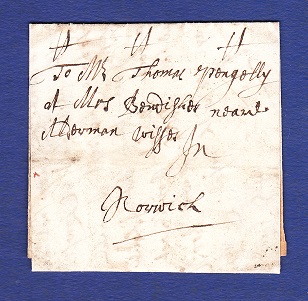 To Mr Thomas Pengelly
at Mrs Bendishes neare
Alderman Wisses
In
Norwich